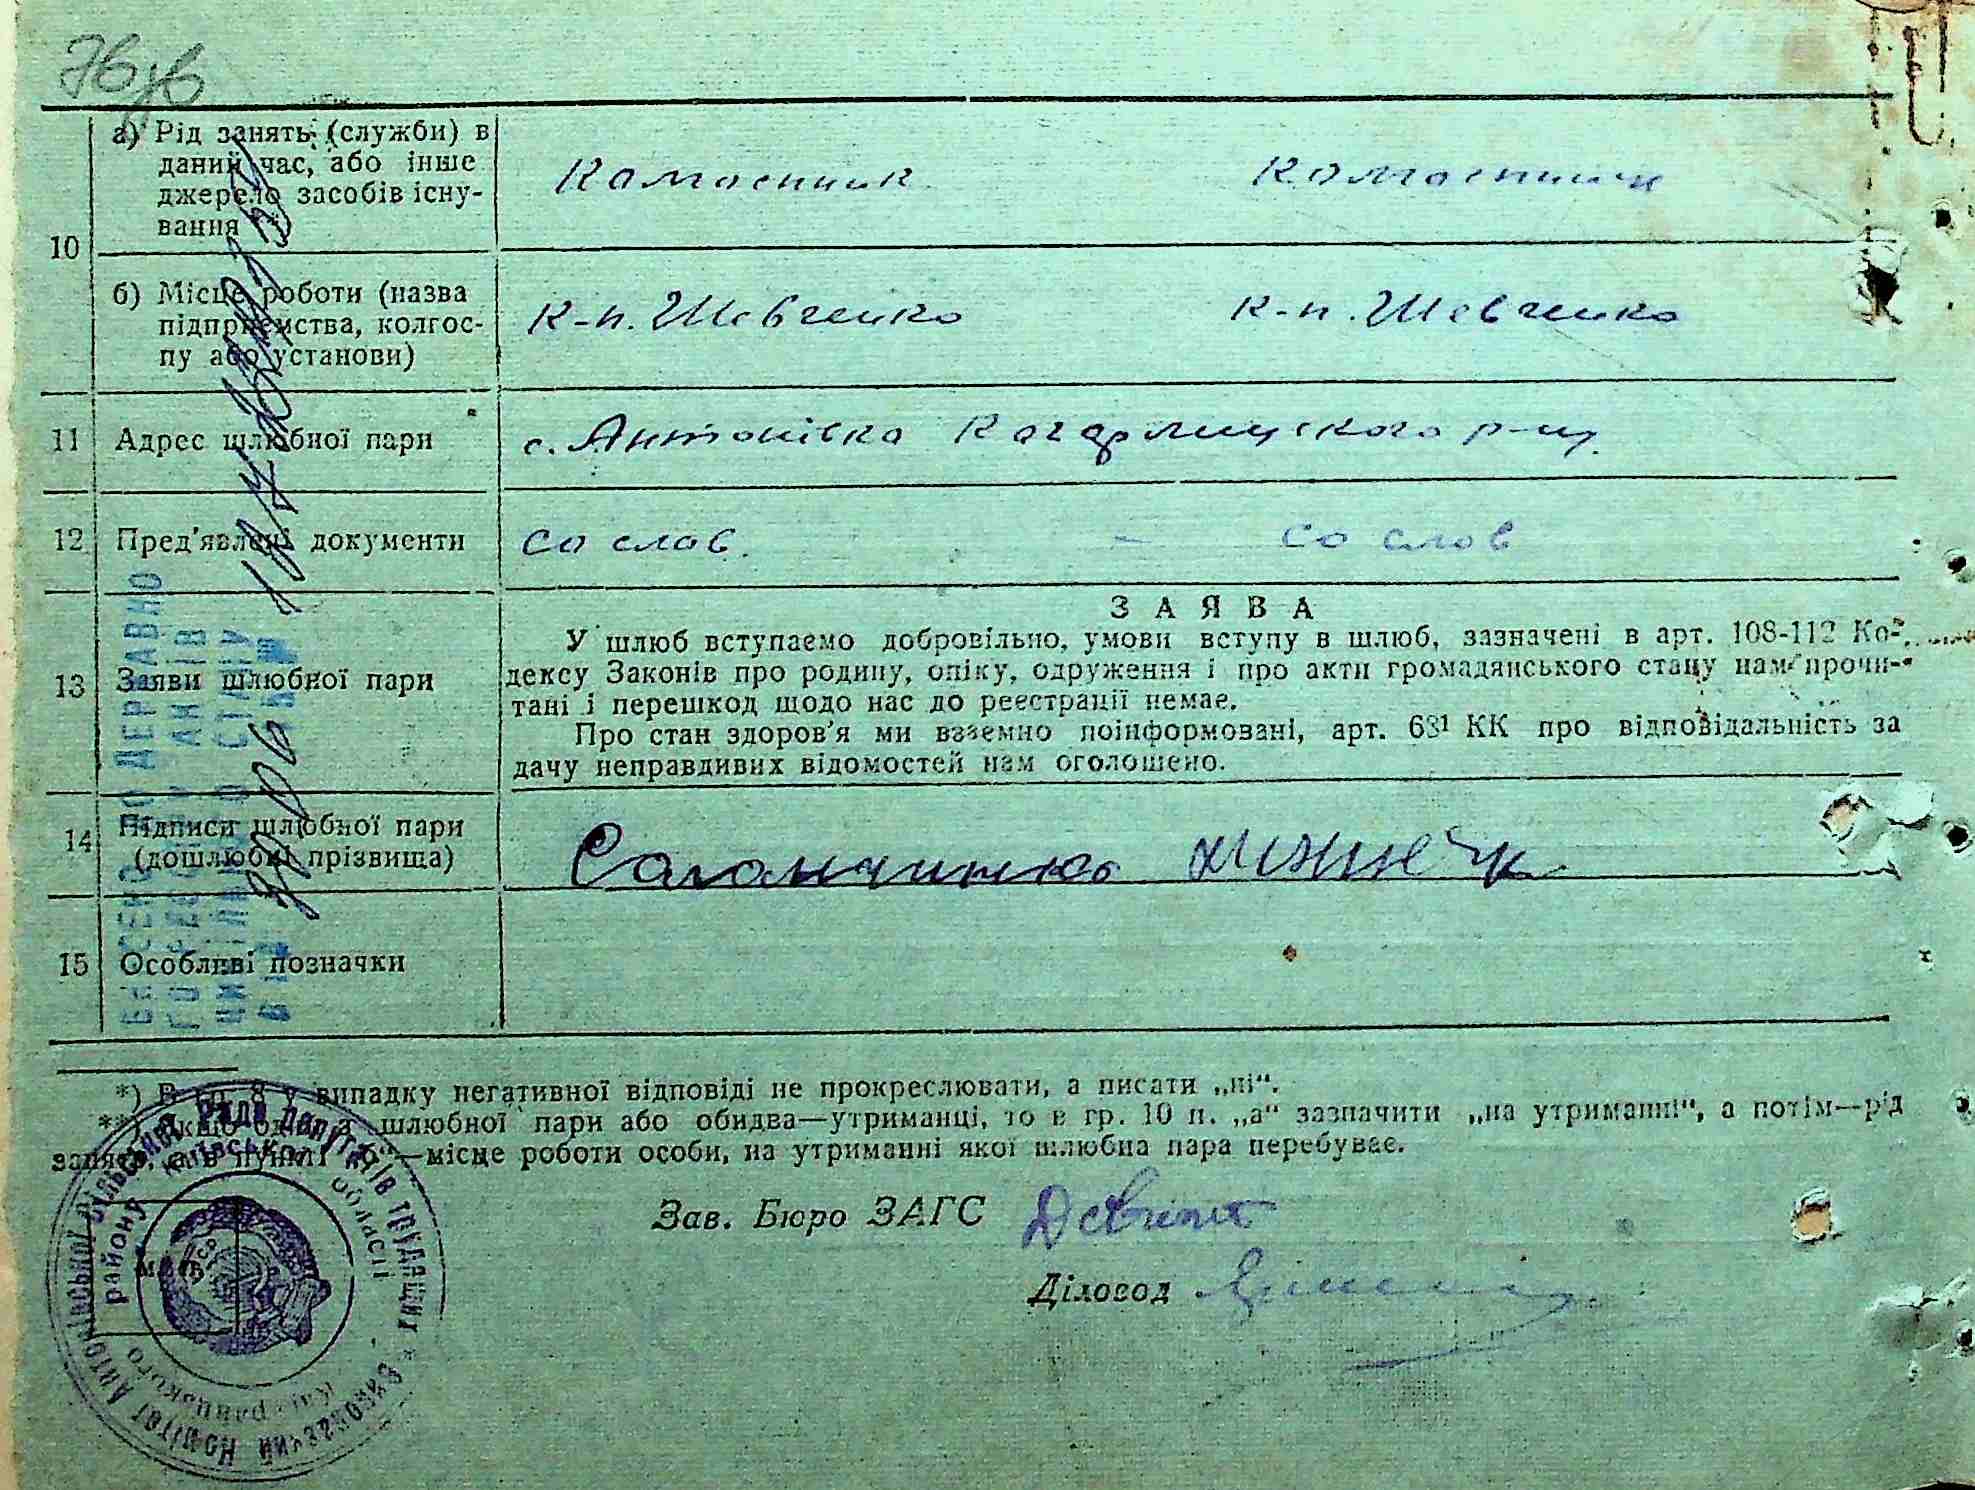 а) Рід занять (служби) в
даний час, або інше
джерело засобів існу-
вання **
Колгоспник Колгоспник
10
б) Місце роботи (назва
підприємства, колгос-
пу або установи)
к-п. Шевченко к-п. Шевченко
11 Адрес шлюбної пари с. Антонівка Кагарлицкого р-ну.
12 Пред'явлені документи со слов. – со слов
13 Заяви шлюбної пари
ЗАЯВА
У шлюб вступаємо добровільно, умови вступу в шлюб, зазначені в арт. 108-112 Ко-
дексу Законів про родину, опіку, одруження і про акти громадянського стану нам прочи-
тані і перешкод щодо нас до реєстрації немає.
Про стан здоров'я ми взаємно поінформовані, арт. 68¹ КК про відповідальність за
дачу неправдивих відомостей нам оголошено.
14 Підписи шлюбної пари
(дошлюбні прізвища)
15 Особливі позначки
*) В гр. 8 у випадку негативної відповіді не прокреслювати, а писати „ні“.
**) Якщо один з шлюбної пари або обидва—утриманці, то в гр. 10 п. „а“ зазначити „на утриманні“, а потім—рід
занять, а в пункті „б“—місце роботи особи, на утриманні якої шлюбна пара перебуває.
Зав. Бюро ЗАГС
Діловод
ВНЕСЕНО ДО ДЕРЖАВНО
ГО РЕЄСТРУ АКТІВ
ЦИВІЛЬНОГО СТАНУ
Виконавчий Комітет Антонівської сільської Ради депутатів трудящих *
району Київської області